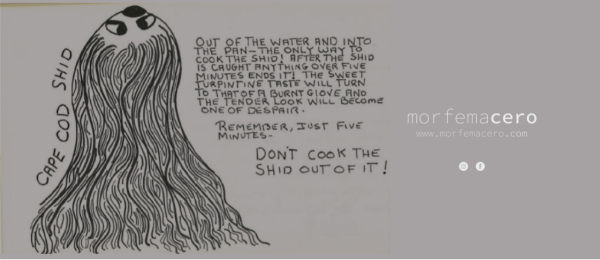 CAPE COD SHID
OUT OF THE WATER AND INTO
THE PAN—THE ONLY WAY TO
COOK THE SHID! AFTER THE SHID
IS CAUGHT ANYTHING OVER FIVE
MINUTES ENDS IT! THE SWEET
TURPINTINE TASTE WILL TURN
TO THAT OF A BURNT GLOVE AND
THE TENDER LOOK WILL BECOME
ONE OF DESPAIR.
REMEMBER, JUST FIVE
MINUTES-
DON'T COOK THE
SHID OUT OF IT!
morfemacero
www.morfemacero.com